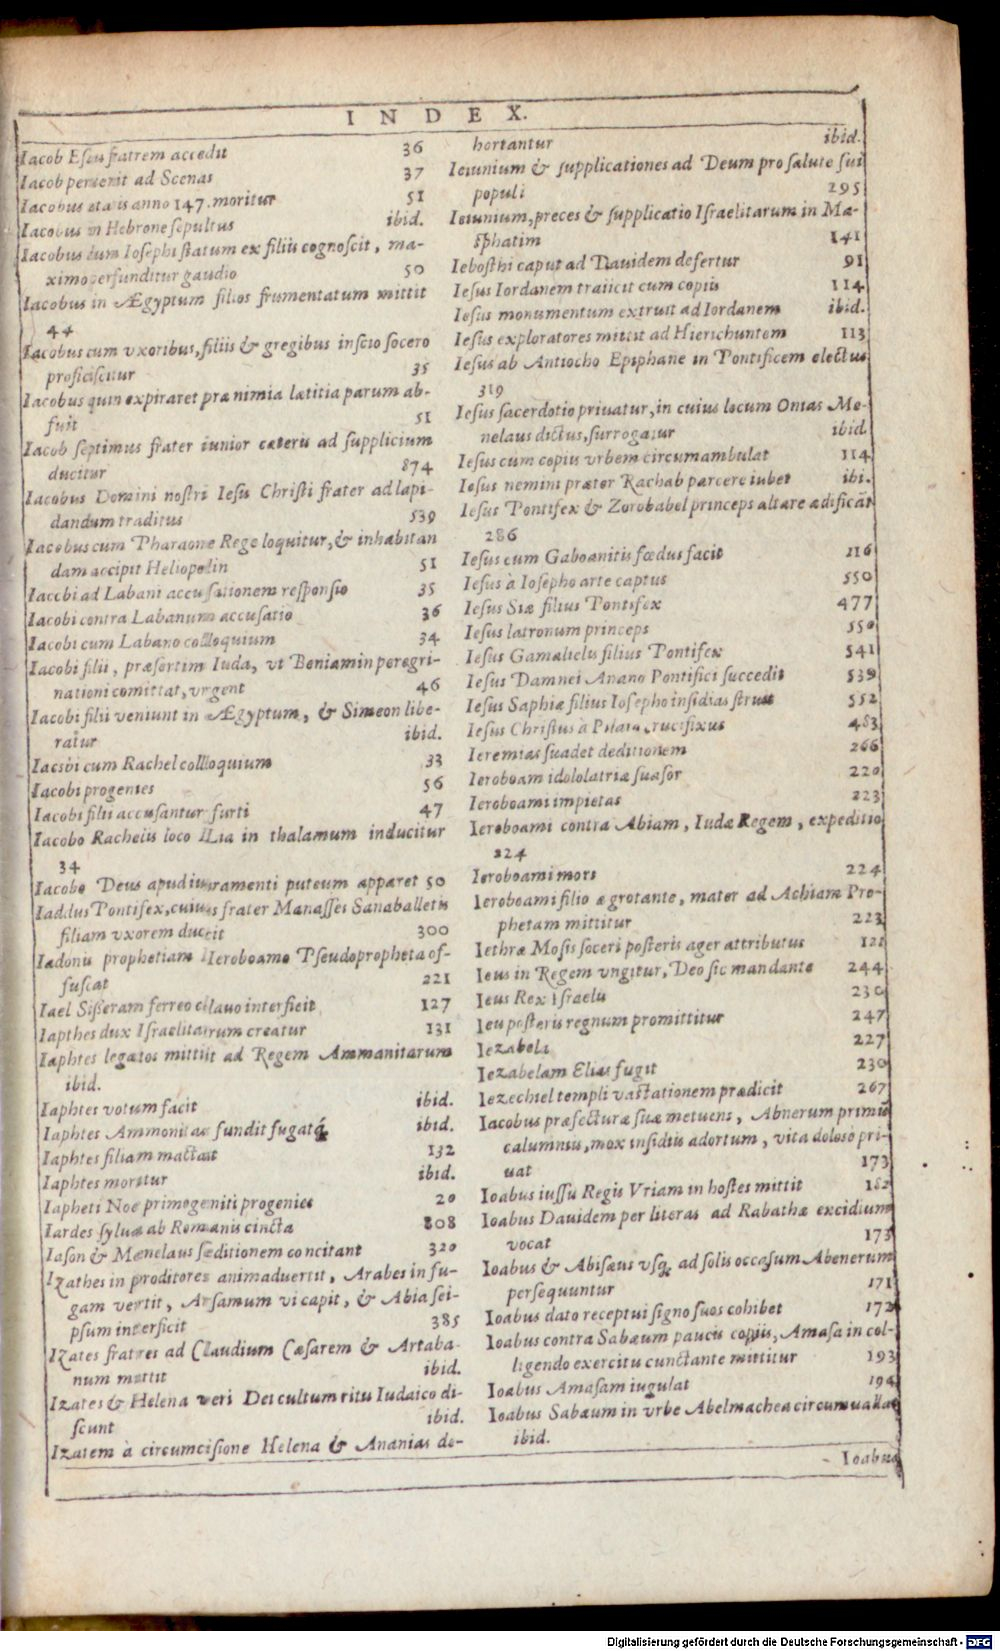 INDEX.
Iacob Esau fratrem accedit 36
Iacob peruenit ad Scenas 37
Iacobus ætatis anno 147. moritur 51
Iacobus in Hebrone sepultus ibid.
Iacobus cum Iosephi statum ex filiis cognoscit, ma-
ximo perfunditur gaudio 50
Iacobus in Ægyptum filios frumentatum mittit
44
Iacobus cum vxoribus, filiis & gregibus inscio socero
proficiscitur 35
Iacobus quin expiraret præ nimia lætitia parum ab-
fuit 51
Iacob septimus frater iunior cæteris ad supplicium
ducitur 874
Iacobus Domini nostri Iesu Christi frater ad lapi-
dandum traditus 539
Iacobus cum Pharaone Rege loquitur, & inhabitan
dam accipit Heliopolin 51
Iacobi ad Labani accusationem responsio 35
Iacobi contra Labanum accusatio 36
Iacobi cum Labano colloquium 34
Iacobi filii, præsertim Iuda, vt Beniamin peregri-
nationi comittat, vrgent 46
Iacobi filii veniunt in Ægyptum, & Simeon libe-
ratur ibid.
Iacobi cum Rachel colloquium 33
Iacobi progenies 56
Iacobi filii accusantur furti 47
Iacobo Rachelis loco Lia in thalamum inducitur
34
Iacobo Deus apud iuramenti puteum apparet 50
Iaddus Pontifex, cuius frater Manasses Sanaballetis
filiam vxorem ducit 300
Iadonis prophetiam Ieroboamo Pseudopropheta of-
fuscat 221
Iael Siseram ferreo clauo interficit 127
Iapthes dux Israelitarum creatur 131
Iaphtes legatos mittit ad Regem Ammanitarum
ibid.
Iaphtes votum facit ibid.
Iaphtes Ammonitas fundit fugatq́; ibid.
Iaphtes filiam mactat 132
Iaphtes moritur ibid.
Iapheti Noe primogeniti progenies 20
Iardes sylua ab Romanis cincta 808
Iason & Menelaus seditionem concitant 320
Izathes in proditores animaduertit, Arabes in fu-
gam vertit, Arsamum vi capit, & Abia sei-
psum interficit 385
Izates fratres ad Claudium Cæsarem & Artaba-
num mittit ibid.
Izates & Helena veri Dei cultum ritu Iudaico di-
scunt ibid.
Izatem à circumcisione Helena & Ananias de-
hortantur ibid.
Ieiunium & supplicationes ad Deum pro salute sui
populi 295
Ieiunium, preces & supplicatio Israelitarum in Ma-
sphatim 141
Iebosthi caput ad Dauidem defertur 91
Iesus Iordanem traiicit cum copiis 114
Iesus monumentum extruit ad Iordanem ibid.
Iesus exploratores mittit ad Hierichuntem 113
Iesus ab Antiocho Epiphane in Pontificem electus
319
Iesus sacerdotio priuatur, in cuius locum Onias Me-
nelaus dictus, surrogatur ibid.
Iesus cum copiis vrbem circumambulat 114
Iesus nemini præter Rachab parcere iubet ibi.
Iesus Pontifex & Zorobabel princeps altare ædificãt
286
Iesus cum Gabaonitis fœdus facit 116
Iesus à Iosepho arte captus 550
Iesus Siæ filius Pontifex 477
Iesus latronum princeps 550
Iesus Gamalielis filius Pontifex 541
Iesus Damnei Anano Pontifici succedit 539
Iesus Saphiæ filius Iosepho insidias struit 552
Iesus Christus à Pilato crucifixus 483
Ieremias suadet deditionem 266
Ieroboam idololatriæ suasor 220
Ieroboami impietas 223
Ieroboami contra Abiam, Iudæ Regem, expeditio
224
Ieroboami mors 224
Ieroboami filio ægrotante, mater ad Achiam Pro-
phetam mittitur 223
Iethræ Mosis soceri posteris ager attributus 121
Ieus in Regem vngitur, Deo sic mandante 244
Ieus Rex Israelis 230
Ieu posteris regnum promittitur 247
Iezabelis 227
Iezabelam Elias fugit 230
Iezechiel templi vastationem prædicit 267
Iacobus præfecturæ suæ metuens, Abnerum primũ
calumniis, mox insidiis adortum, vita dolosò pri-
uat 173
Ioabus iussu Regis Vriam in hostes mittit 182
Ioabus Dauidem per literas ad Rabathæ excidium
vocat 173
Ioabus & Abisæus vsq; ad solis occasum Abenerum
persequuntur 171
Ioabus dato receptui signo suos cohibet 172
Ioabus contra Sabæum paucis copiis, Amasa in col-
ligendo exercitu cunctante mittitur 193
Ioabus Amasam iugulat 194
Ioabus Sabæum in vrbe Abelmachea circumuallat
ibid.
Ioabus
Digitalisierung gefördert durch die Deutsche Forschungsgemeinschaft - DFG